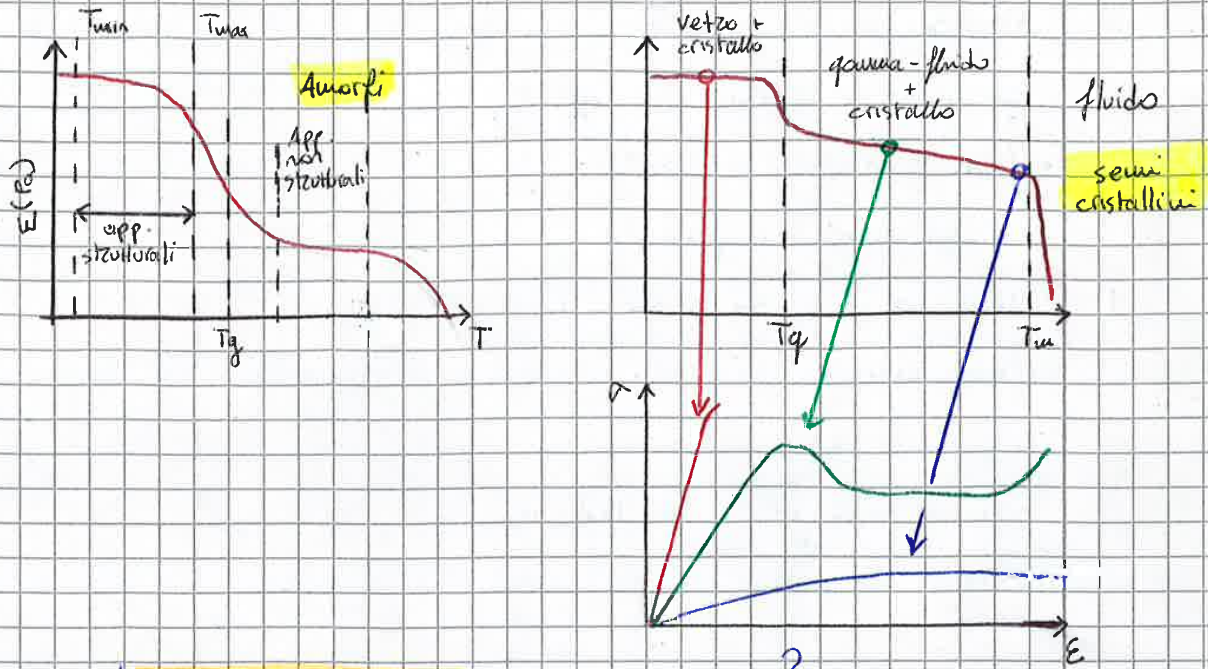 Tmin
Tmax
Amorfi
E(Pa)
app.
strutturali
App.
non
strutturali
Tg
T
vetro +
cristallo
gomma-fluido
+
cristallo
fluido
semi
cristallini
Tg
Tm
σ
ε